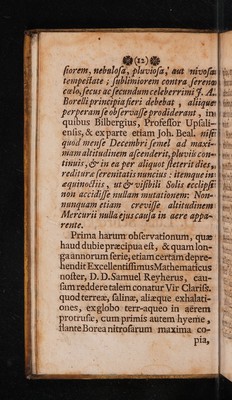 (12)
siorem, nebulosâ, pluviosâ, aut nivosa
tempestate; sublimiorem contra sereno
cœlo, secus ac secundum celeberrimi J. A.
Borelli principia fieri debebat, aliique
perperam se observasse prodiderant, in
quibus Bilbergius, Professor Upsali-
ensis, & ex parte etiam Joh. Beal. nisi
quod mense Decembri semel ad maxi-
mam altitudinem ascenderit, pluviis con-
tinuis, & in ea per aliquot steterit dies,
redituræ serenitatis nuncius: item que in
æquinoctiis, ut & visibili Solis ecclipsi
non accidisse nullam mutationem: Non-
nunquam etiam crevisse altitudinem
Mercurii nulla ejus causa in aere appa-
rente.
Prima harum observationum, quæ
haud dubie præcipua est, & quam lon-
ga annorum serie, etiam certam depre-
hendit Excellentissimus Mathematicus
noster, D. D. Samuel Reyherus, cau-
sam reddere talem conatur Vir Clariss.
quod terreæ, salinæ, aliæque exhalati-
ones, ex globo terr-aqueo in aerem
protrusæ, cum primis autem hyeme,
flante Borea nitrosarum maxima co-
pia,